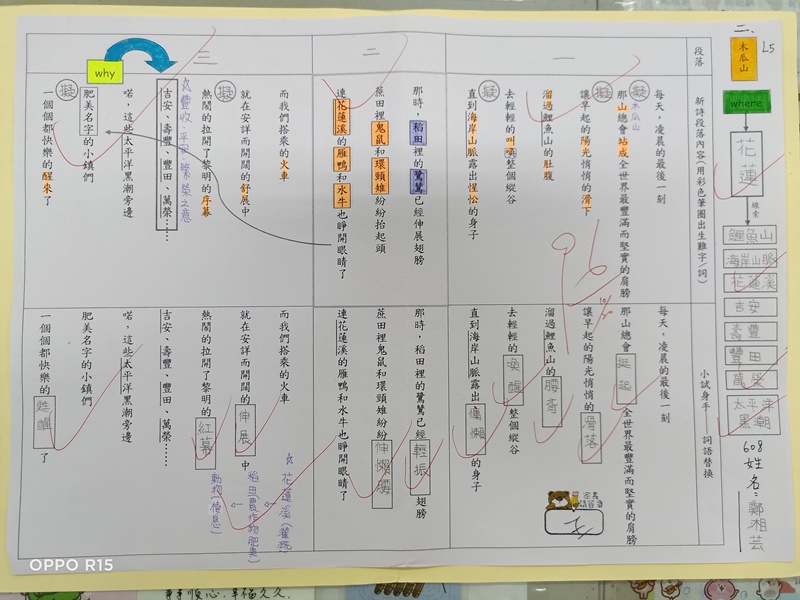 二、
L5
木瓜山
where
花蓮
線索
鯉魚山
海岸山脈
花蓮溪
吉安
壽豐
豐田
萬榮
太平洋黑潮
608
姓名：鄭相芸
段落
新詩段落內容(用彩色筆圈出生難字/詞)
小試身手——詞語替換
一
每天，凌晨的最後一刻
擬
木瓜山
那山總會站成全世界最豐滿而堅實的肩膀
擬
讓早起的陽光悄悄的滑下
溜過鯉魚山的肚腹
去輕輕的叫喚整個縱谷
擬
直到海岸山脈露出惺忪的身子
每天，凌晨的最後一刻
那山總會挺起全世界最豐滿而堅實的肩膀
讓早起的陽光悄悄的滑落
溜過鯉魚山的腰脊
去輕輕的喚醒整個縱谷
直到海岸山脈露出慵懶的身子
96
二
那時，稻田裡的鷺鷥已經伸展翅膀
蔗田裡鬼鼠和環頸雉紛紛抬起頭
連花蓮溪的雁鴨和水牛也睜開眼睛了
那時，稻田裡的鷺鷥已經輕振翅膀
蔗田裡鬼鼠和環頸雉紛紛伸懶腰
連花蓮溪的雁鴨和水牛也睜開眼睛了
三
why
而我們搭乘的火車
就在安詳而開闊的舒展中
擬
熱鬧的拉開了黎明的序幕
☆豐收、平安、繁榮之意
吉安、壽豐、豐田、萬榮……
喏，這些太平洋黑潮旁邊
肥美名字的小鎮們
擬
一個個都快樂的醒來了
而我們搭乘的火車
就在安詳而開闊的伸展中
熱鬧的拉開了黎明的紅幕
吉安、壽豐、豐田、萬榮……
喏，這些太平洋黑潮旁邊
肥美名字的小鎮們
一個個都快樂的甦醒了
☆花蓮溪(灌溉)
稻田農作物肥美
動物(棲息)
OPPO R15